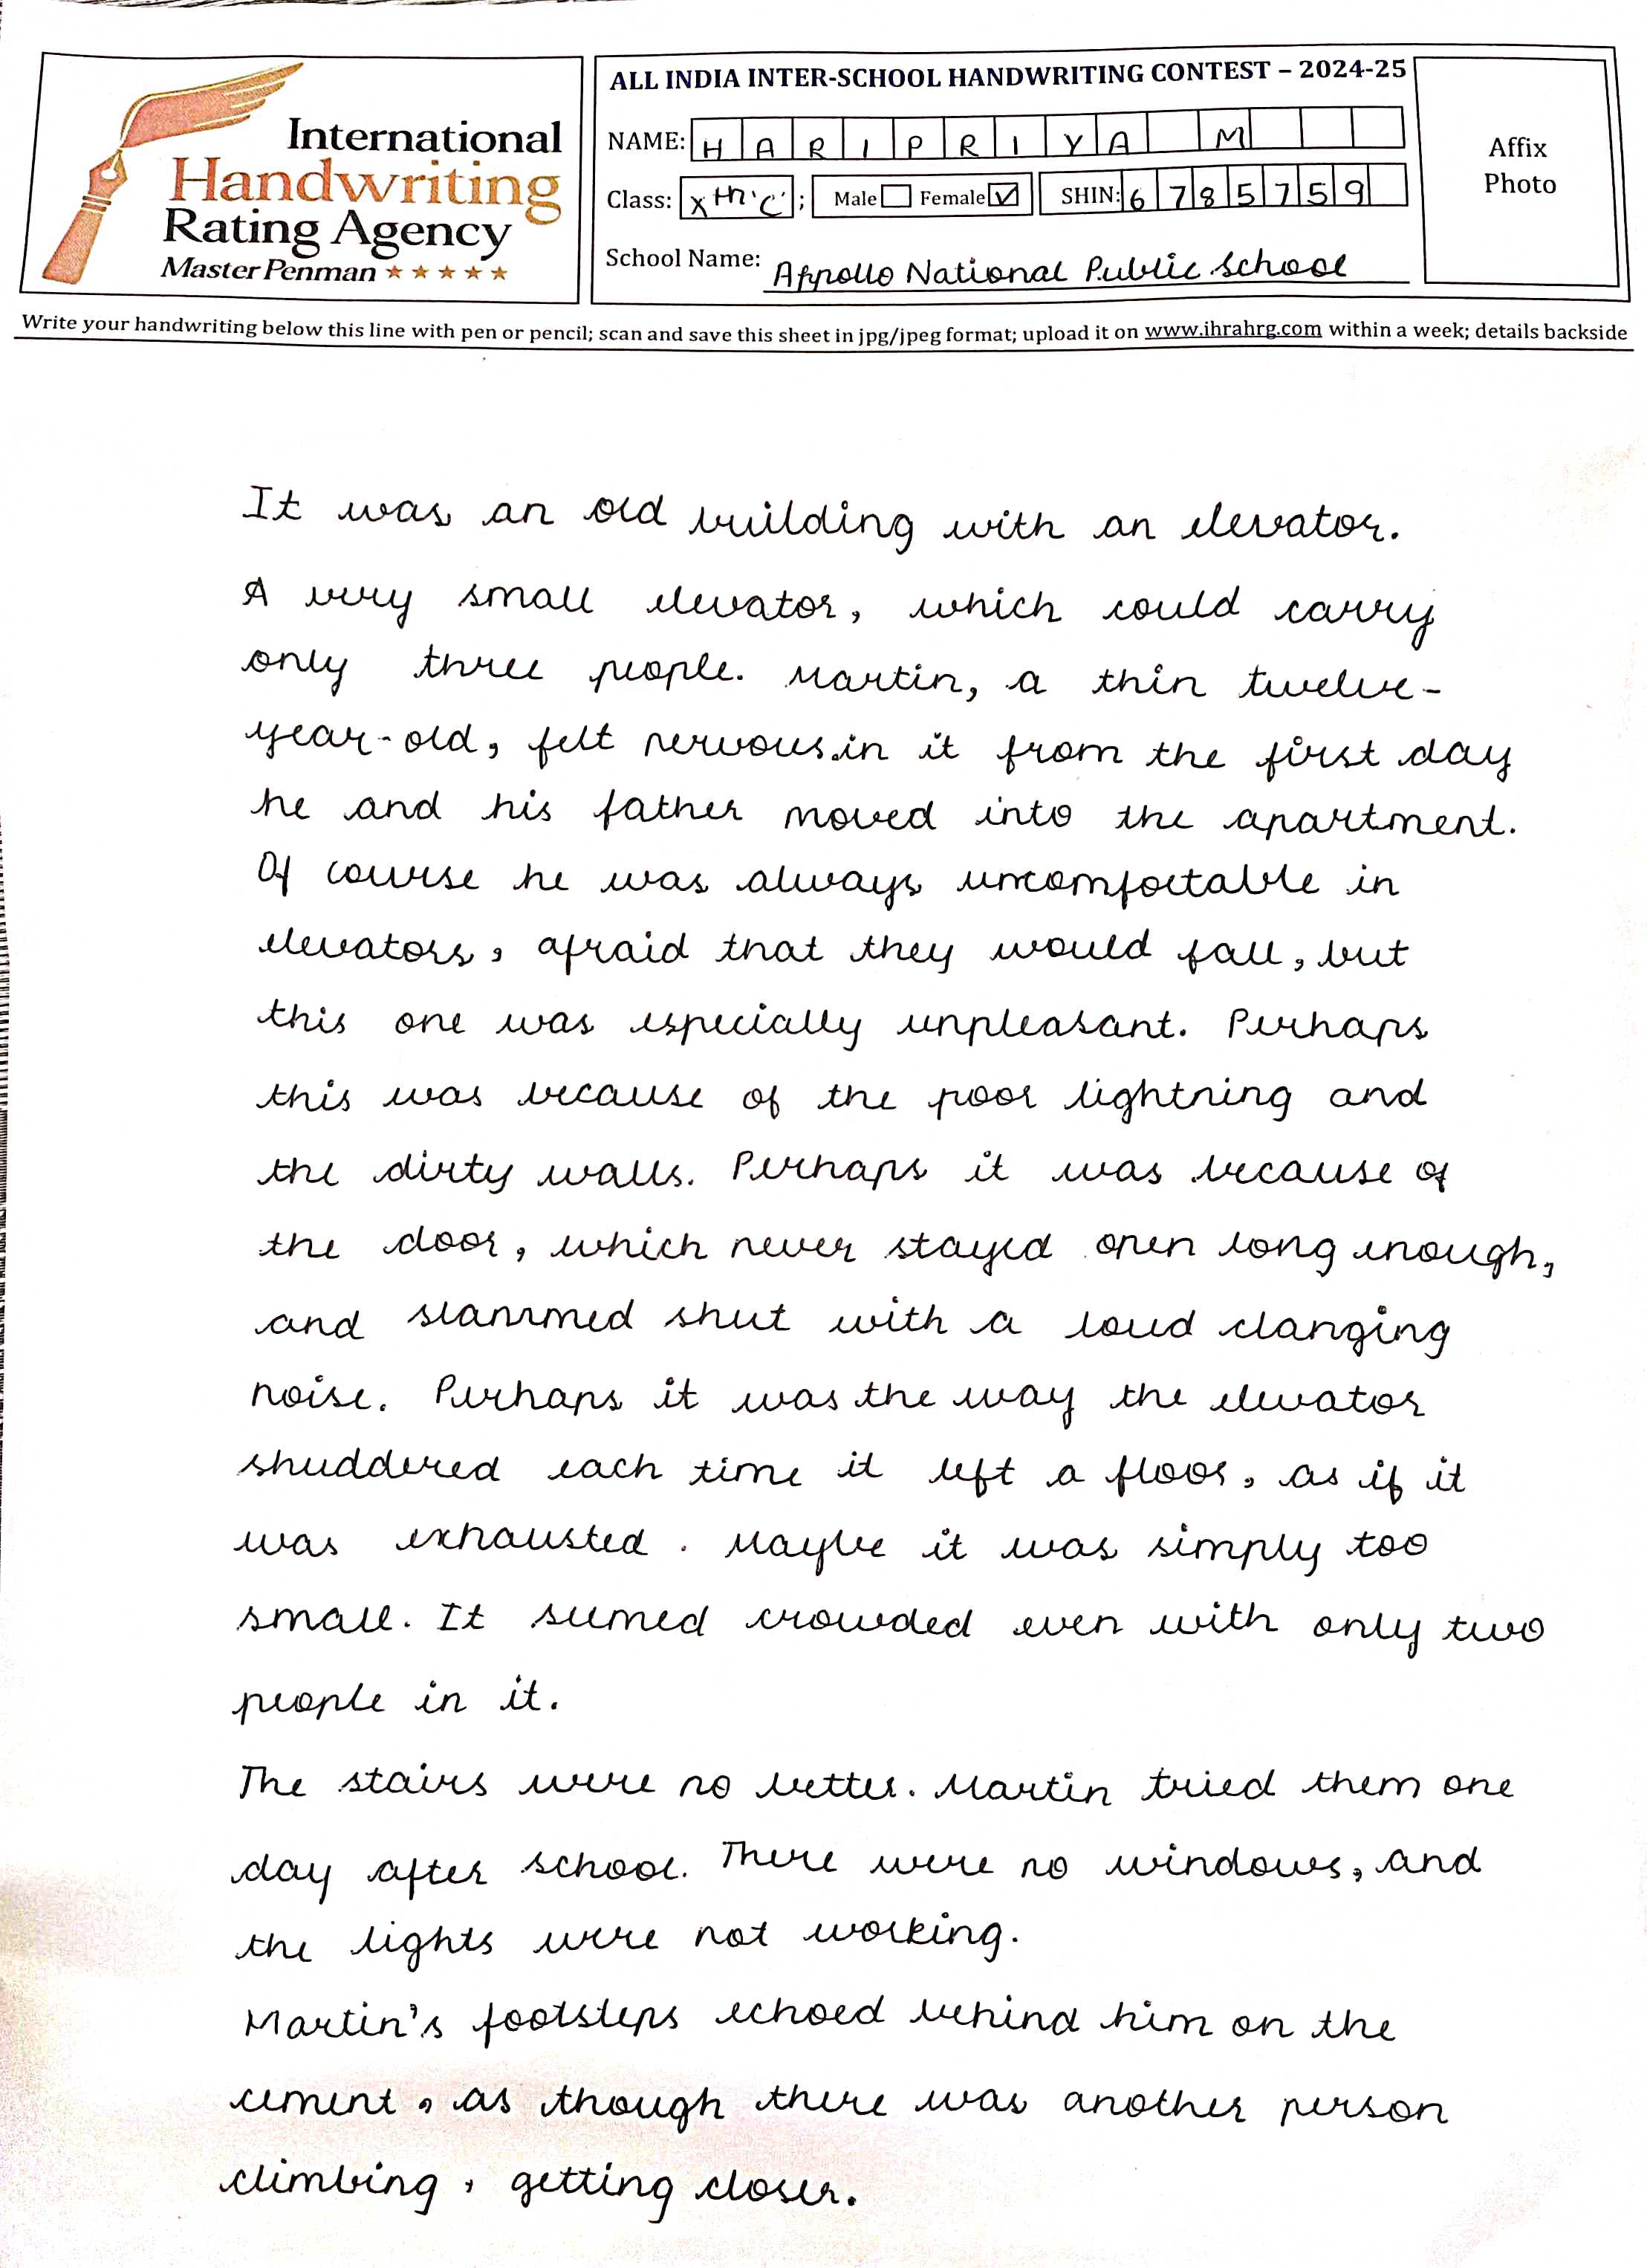 International
Handwriting
Rating Agency
Master Penman
ALL INDIA INTER-SCHOOL HANDWRITING CONTEST – 2024-25
NAME: HARIPRIYA M
Class: Xth 'C' ; Male Female ✓ SHIN: 6785759
School Name: Appollo National Public School
Affix
Photo
Write your handwriting below this line with pen or pencil; scan and save this sheet in jpg/jpeg format; upload it on www.ihrahrg.com within a week; details backside
It was an old building with an elevator.
A very small elevator, which could carry
only three people. Martin, a thin twelve-
year-old, felt nervous in it from the first day
he and his father moved into the apartment.
Of course he was always uncomfortable in
elevators, afraid that they would fall, but
this one was especially unpleasant. Perhaps
this was because of the poor lightning and
the dirty walls. Perhaps it was because of
the door, which never stayed open long enough,
and slammed shut with a loud clanging
noise. Perhaps it was the way the elevator
shuddered each time it left a floor, as if it
was exhausted. Maybe it was simply too
small. It seemed crowded even with only two
people in it.
The stairs were no better. Martin tried them one
day after school. There were no windows, and
the lights were not working.
Martin's footsteps echoed behind him on the
cement, as though there was another person
climbing, getting closer.